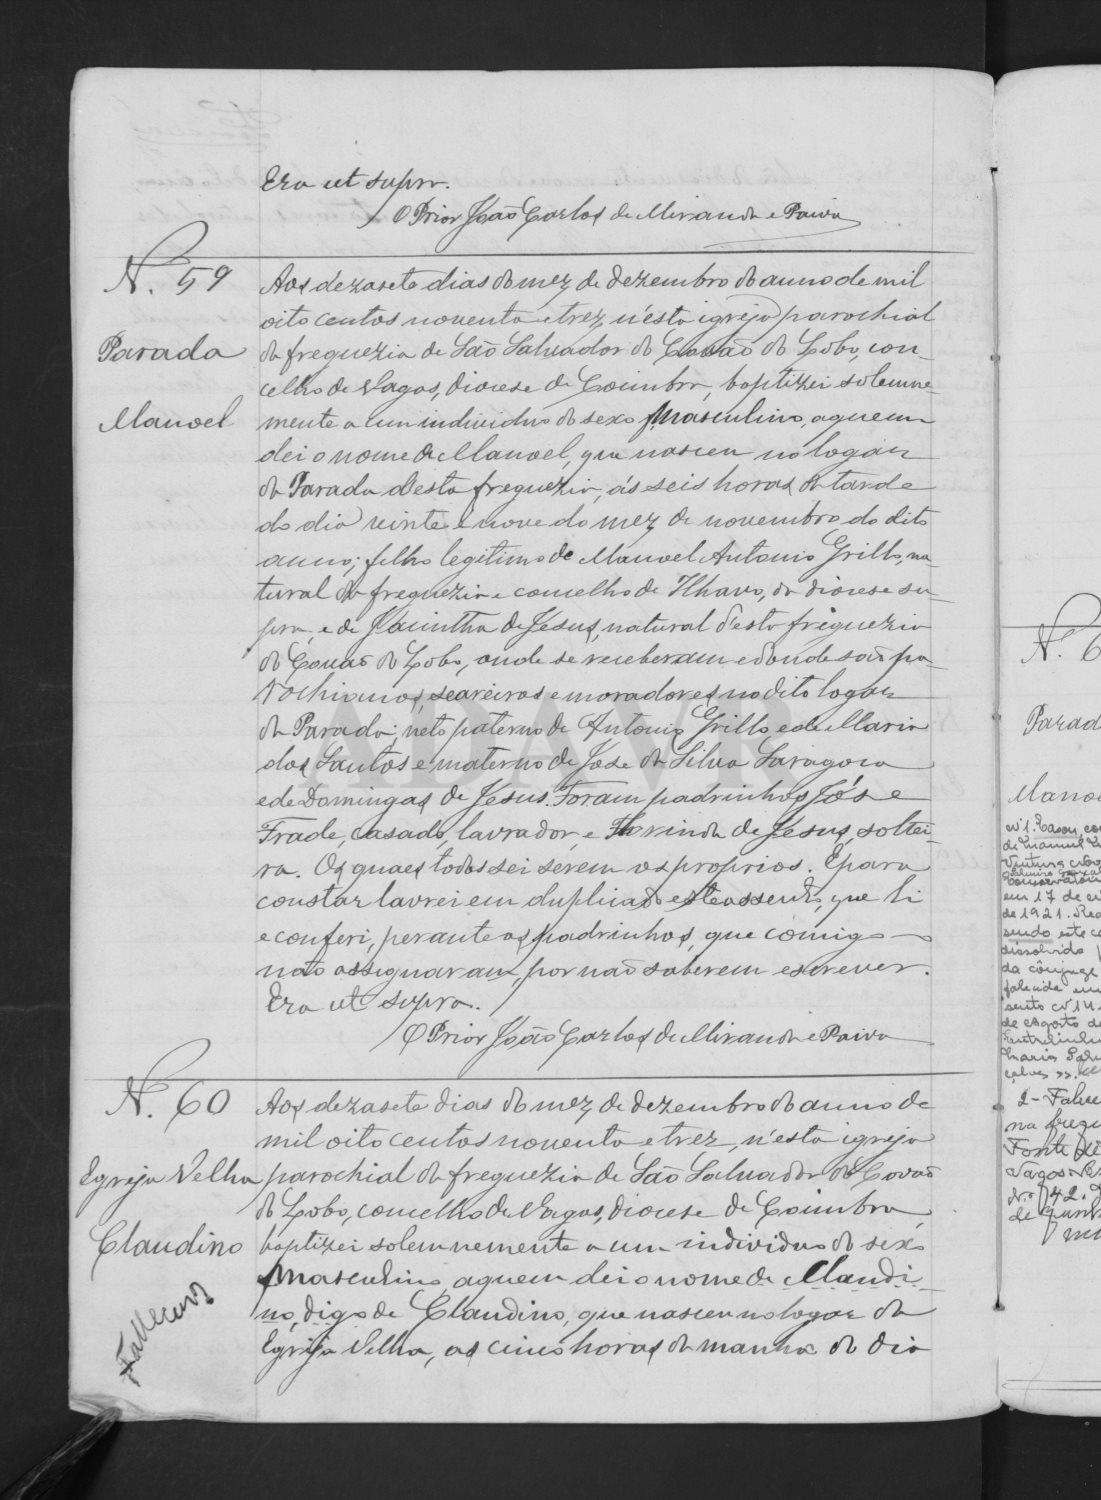 Era ut supra.
O Prior João Carlos de Miranda e Paiva
N. 59
Parada
Manoel
Aos dezasete dias do mez de dezembro do anno de mil
oito centos noventa e trez, n'esta igreja parochial
da freguezia de São Salvador do Covão do Lobo, con-
celho de Vagos, diocese de Coimbra, baptizei solemne-
mente a um individuo do sexo masculino, a quem
dei o nome de Manoel, que nasceu no logar
da Parada d'esta freguezia, ás seis horas da tarde
do dia vinte e nove do mez de novembro do dito
anno; filho legitimo de Manoel Antonio Grillo, na-
tural da freguezia e concelho de Ilhavo, da diocese su-
pra, e de Jacintha de Jesus, natural d'esta freguezia
do Covão do Lobo, onde se receberam e donde são pa-
rochianos, seareiros e moradores no dito logar
da Parada; neto paterno de Antonio Grillo, e de Maria
dos Santos e materno de Jose da Silva Saragoça
e de Domingas de Jesus. Foram padrinhos José
Frade, casado, lavrador, e Florinda de Jesus, soltei-
ra. Os quaes todos sei serem os proprios. E para
constar lavrei em duplicado este assento, que li
e conferi, perante os padrinhos, que comigo
não assignaram, por não saberem escrever.
Era ut supra.
O Prior João Carlos de Miranda e Paiva
N. 60
Egreja Velha
Claudino
Falleceu
Aos dezasete dias do mez de dezembro do anno de
mil oito centos noventa e trez, n'esta igreja
parochial da freguezia de São Salvador do Covão
do Lobo, concelho de Vagos, diocese de Coimbra,
baptizei solemnemente a um individuo do sexo
masculino, a quem dei o nome de Claudi-
no, digo de Claudino, que nasceu no logar da
Egreja Velha, as cinco horas da manhã do dia
ADAVR
N. 6
Parad
Mano
Nº 1. Casou, co
em 17 de
de 1921.
dissolvido
da cônjuge
falecida em
de Agosto de
Maria
2- Falec
na fregu
Fonte de
Vagos
Nº 42.
de